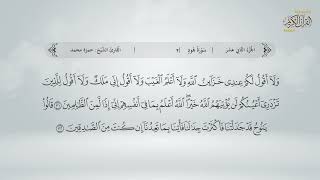 القرآن الكريم
الجزء الثاني عشر | سورة هود | ٣١ | القارئ الشيخ: حمزة محمد
وَلَآ أَقُولُ لَكُمۡ عِندِي خَزَآئِنُ ٱللَّهِ وَلَآ أَعۡلَمُ ٱلۡغَيۡبَ وَلَآ أَقُولُ إِنِّي مَلَكٞ وَلَآ أَقُولُ لِلَّذِينَ
تَزۡدَرِيٓ أَعۡيُنُكُمۡ لَن يُؤۡتِيَهُمُ ٱللَّهُ خَيۡرًاۖ ٱللَّهُ أَعۡلَمُ بِمَا فِيٓ أَنفُسِهِمۡ إِنِّيٓ إِذٗا لَّمِنَ ٱلظَّٰلِمِينَ ٣١ قَالُواْ
يَٰنُوحُ قَدۡ جَٰدَلۡتَنَا فَأَكۡثَرۡتَ جِدَٰلَنَا فَأۡتِنَا بِمَا تَعِدُنَآ إِن كُنتَ مِنَ ٱلصَّٰدِقِينَ ٣٢